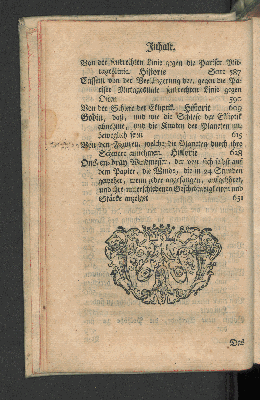 Inhalt.
Von der senkrechten Linie gegen die Pariser Mit-
tagslinie. Historie Seite 587
Cassini von der Verlängerung der, gegen die Pa-
riser Mittagslinie senkrechten Linie gegen
Osten 590
Von der Schiefe der Ekliptik. Historie 609
Godin, daß, und wie die Schiefe der Ekliptik
abnehme, und die Knoten der Planeten un-
beweglich seyn 615
Von den Figuren, welche die Planeten durch ihre
Schwere annehmen. Historie 628
Ons-en-bray Windmesser, der von sich selbst auf
dem Papier, die Winde, die in 24 Stunden
gewehet, wenn jeder angefangen, aufgehöret,
und ihre unterschiedenen Geschwindigkeiten und
Stärke anzeiget 651
Des